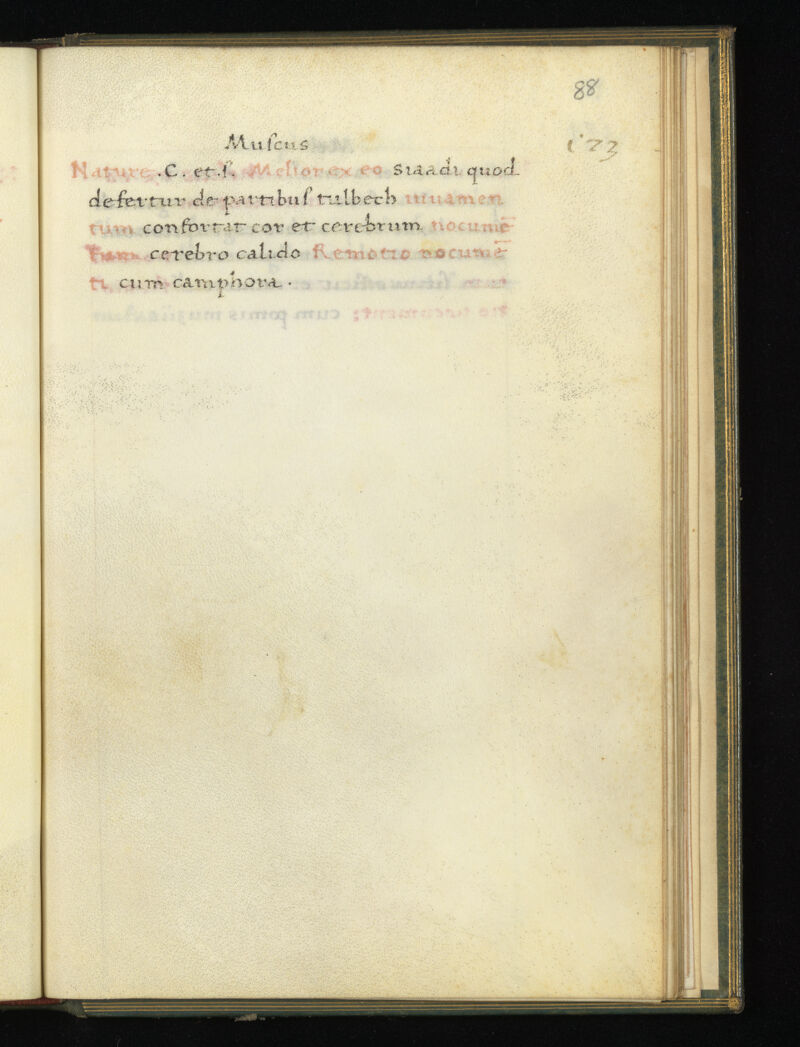 88
173
Muſcus
Nature .C. et .ſ. Melior ex eo siaadi quod
defertur de partibuſ tulbech iuuamen
tum confortat cor et cerebrum nocumē
tum cerebro calido Remotio nocumē
ti cum camphora .